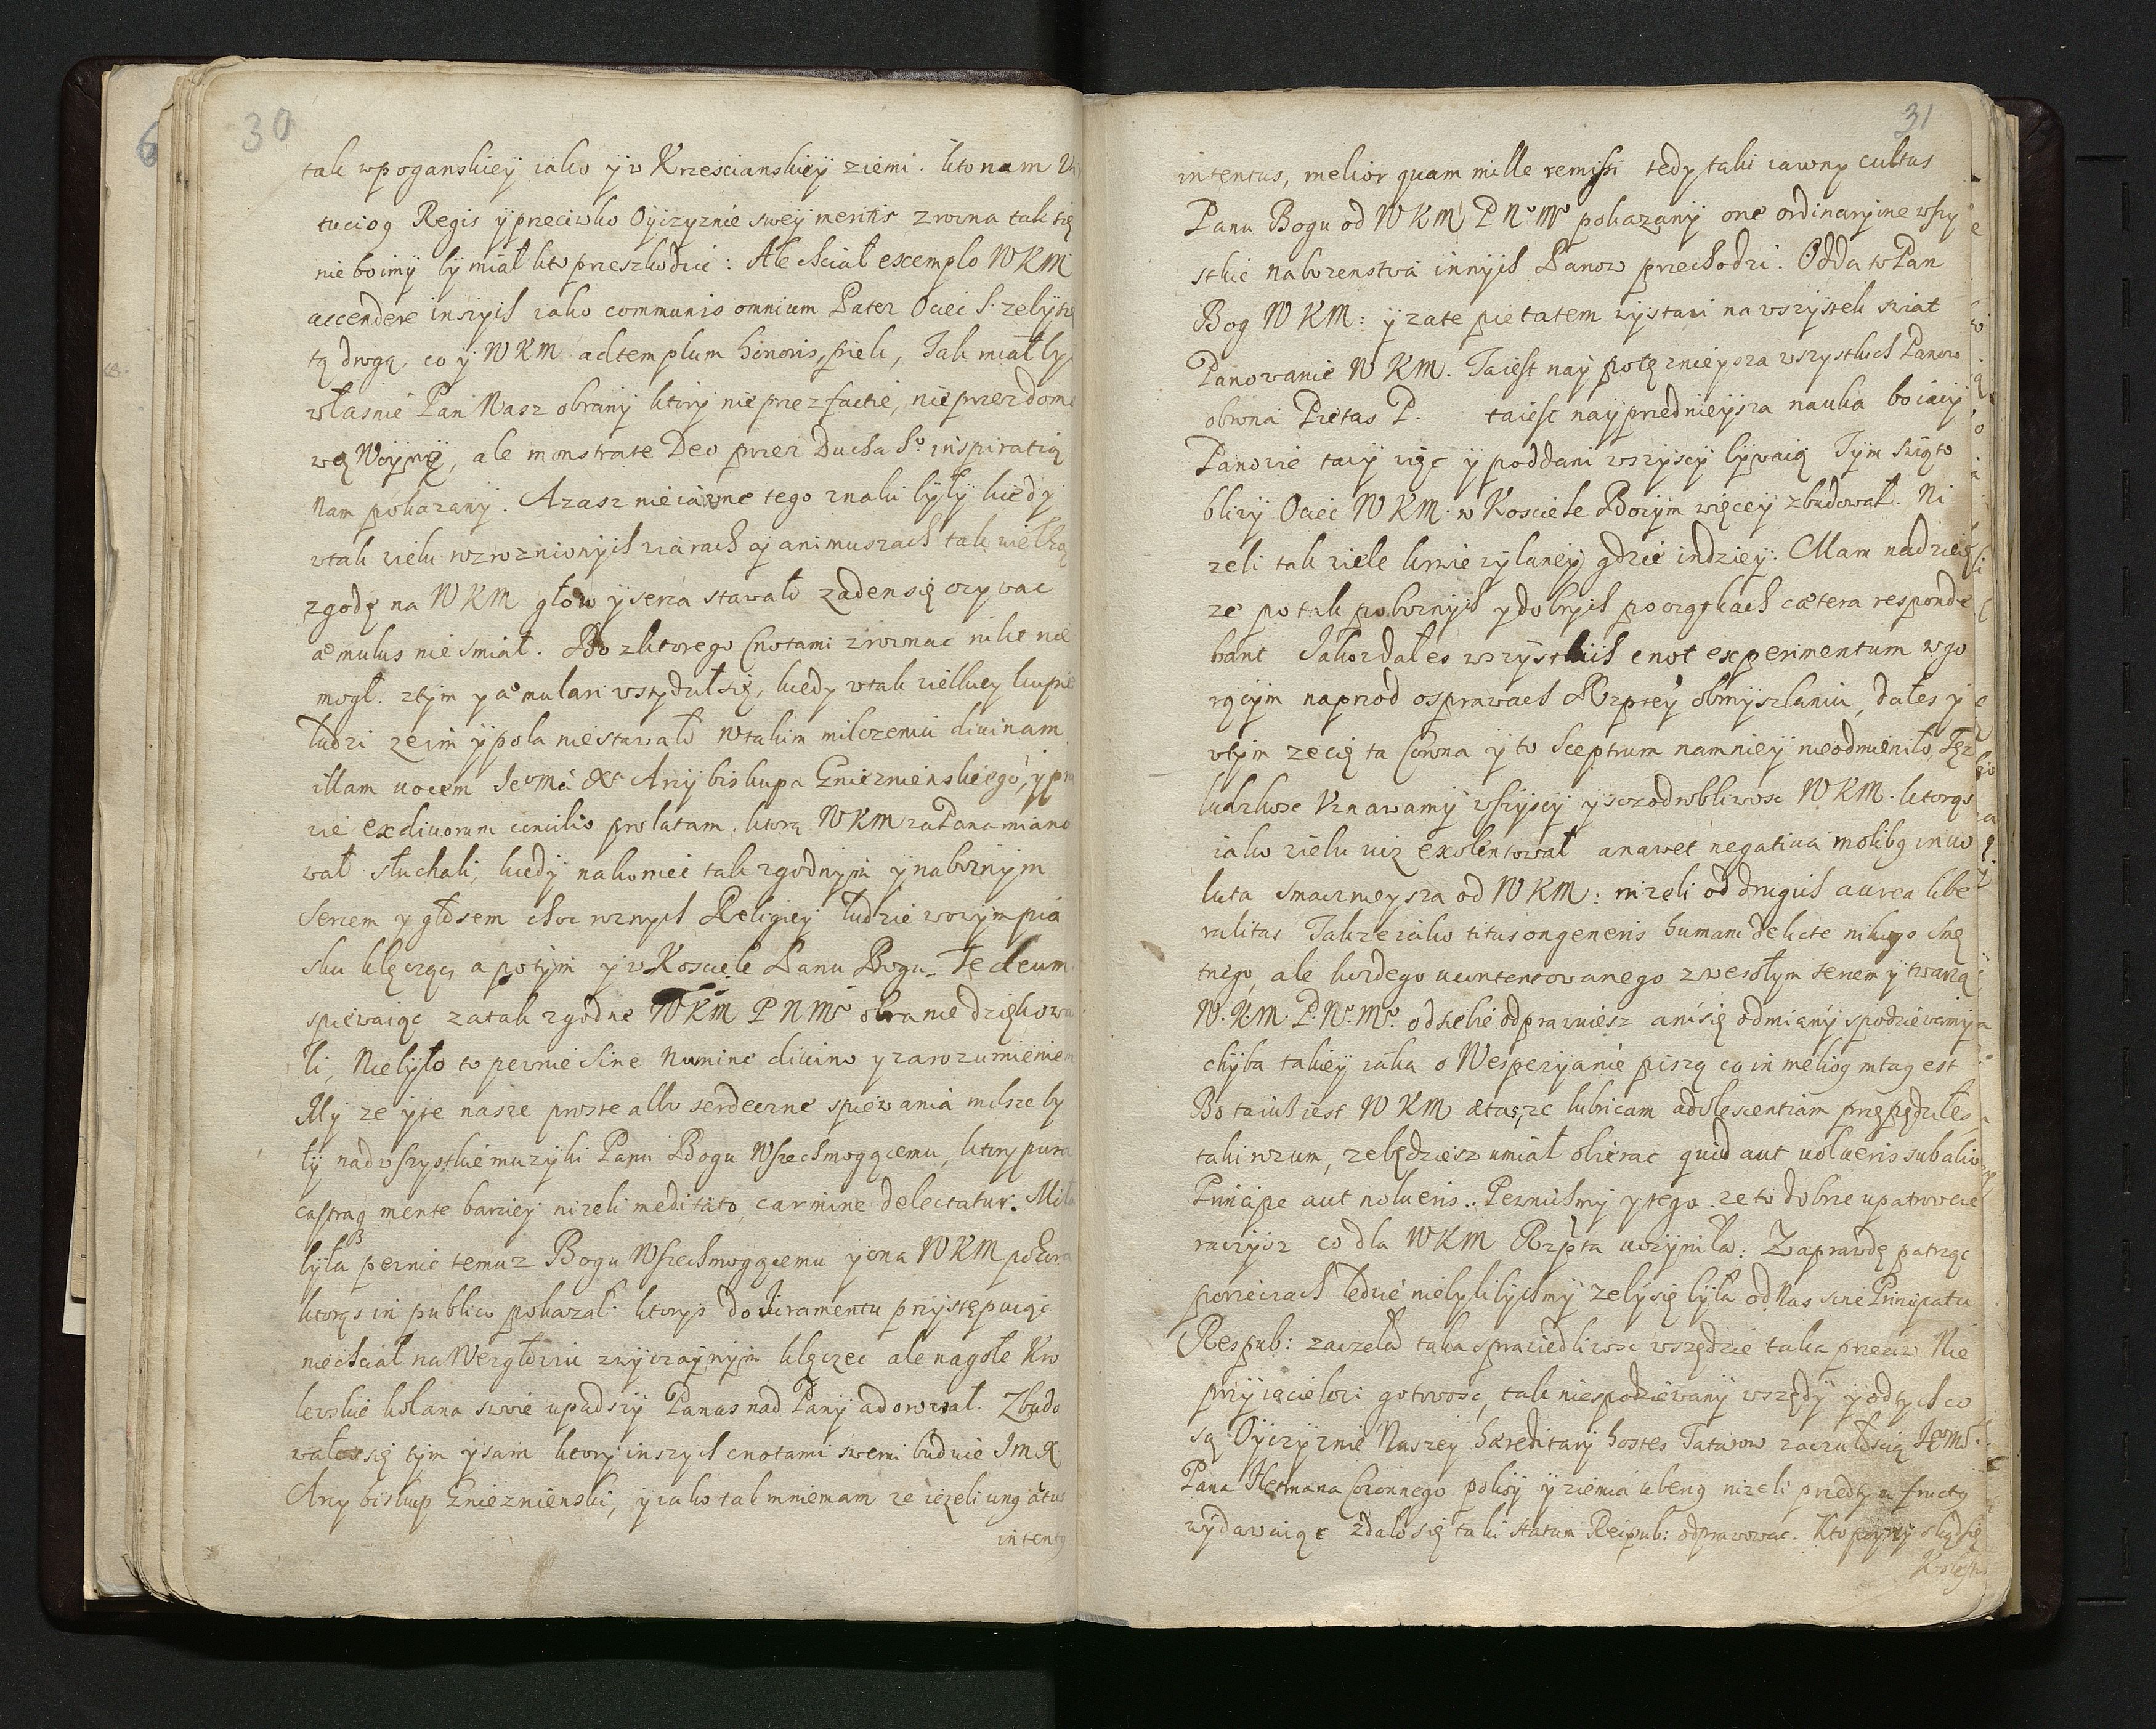 30
tak w poganskiey iako y w Krzescianskiey ziemi. kto nam
tuciog Regis y przeciwko Oyczyznie swey meritis zrowna tak się
nie boimy by miał kto przeszkodzic: Ale chciał exemplo WKM
accendere inszych iako communis omnium Pater Ociec S. zeby tą
tą drogą, co y WKM ad templum honoris, Tak miał by
własnie Pan Nasz obrany ktory nie przez factie, nie przez domo
wą Woynę, ale monstrate Deo przez Ducha So inspiratią
Nam pokazany. Azasz nie iawne tego znaki były kiedy
w tak wielu wzroznionych wiarach y animuszach tak wielką
zgodę na WKM głow y serca stawało zaden się ozywac
æmulus nie smiał. Bo z ktorego Cnotami zrownac nikt nie
mogł. z tym y æmulari wstydził się, kiedy w tak wielkiey kupie
ludzi ze im y pola nie stawało w takim milczeniu diuinam
illam uocem Ieo Mci Xa Arcybiskupa Gnieznienskiego, y pra
wie ex diuorum concilio prolatam. ktorą WKM za Pana miano
wał słuchali, kiedy nakoniec tak zgodnym y naboznym
Sercem y głosem choc roznych Religiey ludzie w owym pia
sku klęcząc, a potym y w Kosciele Panu Bogu Te deum
spiewaiąc za tak zgodne WKM P N Mo obranie dziękowa
li, Nie było to pewnie sine Numine diuino y zarozumieniem
My ze y te nasze proste albo serdeczne spiewania milsze by
ły nad wszystkie muzyki Panu Bogu Wszechmogącemu, ktory pura
castaq mente barziey nizeli meditato carmine delectatur. Miła
była pewnie temuz Bogu Wszechmogącemu y ona WKM pokora
ktorąs in publico pokazał. ktorys do iuramentu przystępuiąc
nie chciał na Wezgłowiu zwyczaynym klęczec ale na gołe Kro
lewskie kolana swoie upadszy Pana nad Pany adorował. Zbudo
wał się tym y sam ktory inszych cnotami swemi buduie Im X
Arcybiskup Gnieznienski, y iako tak mniemam ze iezeli unq åtus
intentq
31
intentus, melior quam mille remissi tedy taki iawny cultus
Panu Bogu od WKM P No Mo pokazany one ordinaryine wszy
stkie nabozenstwa innych Panow przechodzi. Odda to Pan
Bog WKM: y za te pietatem wystawi na wszystek swiat
Panowanie WKM. Ta iest naypotęznieysza wszystkich Panow
obrona Pietas P. ta iest nayprzednieysza nauka bo iacy
Panowie tacy więc y poddani wszyscy bywaią Tym Swięto
bliwy Ociec WKM w Kosciele Bozym więcey zbudował. Ni
zeli tak wiele krwie wylaney gdzie indziey. Mam nadzieię
ze po tak poboznych y dobrych początkach cætera responde
bant Iakoz dałes wszystkich cnot experimentum w go
rącym naprzod o sprawach Rzptey obmyszlaniu, dałes y
w tym ze cię ta Corona y to Sceptrum namniey nie odmieniło. Tęz
ludzkosc Uznawamy wszyscy y szczodrobliwosc WKM. ktorąs
iako wielu uiz exolentował a nawet negatiua molibq inuo
luta smacznieysza od WKM: nizeli od drugich aurea libe
ralitas Takze iako titus on generis humani delicte nikogo smę
tnego, ale kazdego ucontentowanego z wesołym sercem y twarzą
W. K. M. P. No. Mo. od siebie odprawuiesz ani się odmiany spodziewamy
chyba takiey iaka o Wespezyanie piszą co in meliog mtaq est
Bo ta iuz iest WKM ætas, ze lubricam adolescentiam przepędziłes
taki rozum, ze będziesz umiał obierac quid aut uolueris sub alio
Principe aut nolueris. Pewnismy y tego ze to dobrze upatrowac
raczysz co dla WKM Rzpta uczyniła. Zaprawdę patrząc
po rzeczach ledwie nie bylibychmy zeby się była od Nas sine Principatu
Respub: zaczela taka sprawiedliwosc wszędzie taka przeciw Nie
przyiacielowi gotowosc, tak niespodziewany wszędy y od tych co
są Oyczyznie Naszey hæreditarij hostes Tatarow za czułoscią Ieo Ms.
Pana Hetmana Coronnego pokoy y ziemia ubenq nizeli przedtym fructq
wydawaiąc zdało się taki statum Reipub: odprawowac. Kto poyrzy skąd się